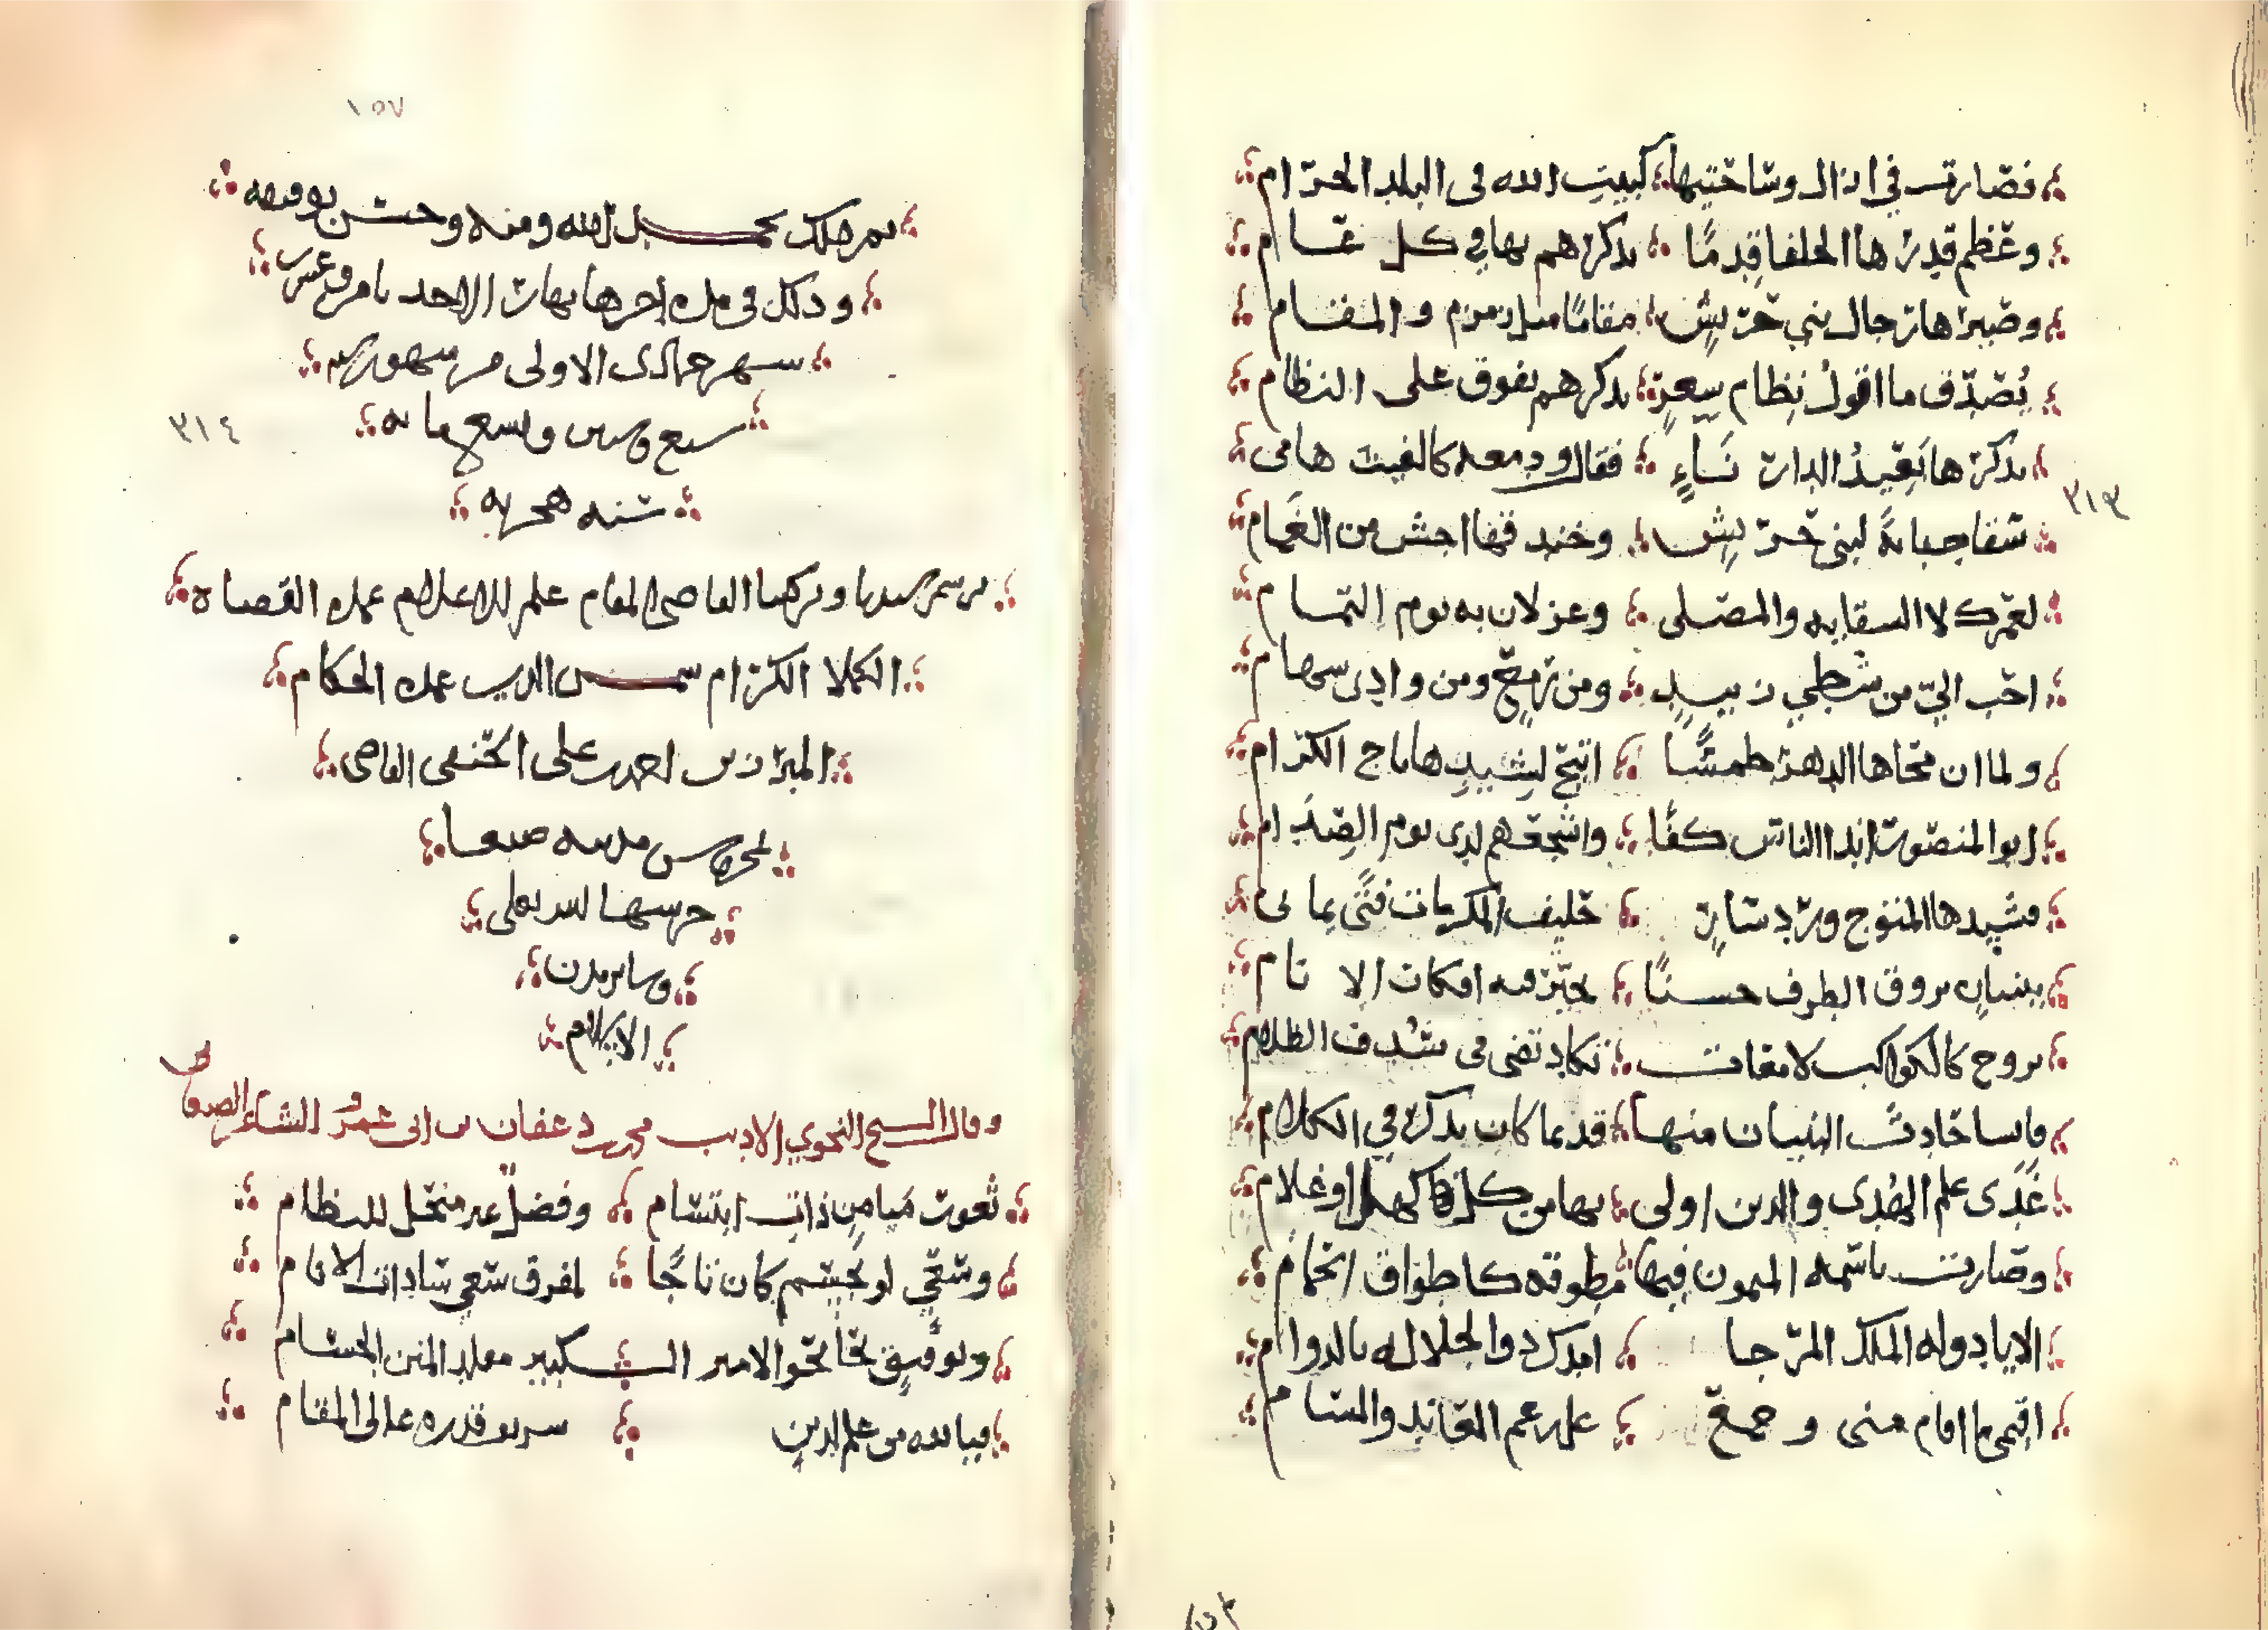 فصارت في ازال وساحتيها كبيت الله في البلد الحرام
وعظم قدرها الخلفا قدما بذكرهم بها في كل عام
وصيرها رجال بني حريش مقاما مثل زمزم والمقام
يصدق ما اقول نظام شعر بذكرهم يفوق على النظام
بذكرها بعيد الدار ناء فقال ودمعه كالغيث هامي
سقا جبانة لبني حريش وخندقها اجش من الغمام
لعمرك لا السقايه والمصلى وعزلان به يوم التمام
احب الي من شطي زبيد ومن رمع ومن وادى سهام
ولما ان محاها الدهر طمسا اتيح لشيدها تاج الكرام
ابو المنصور اندا الناس كفا واشجعهم لدى يوم الصدام
مشيدها المتوج ورد سار خليف المكرمات فتى يمانى
ببنيان يروق الطرف حسنا تحير فيه افكار الانام
بروج كالكواكب لامعات تكاد تضى فى سدف الظلام
فانسا حادث البنيان منها قديما كان يذكر في الكلام
غدى علم الهدى والدين اولى بها من كل كهل او غلام
وصارت باسمه الميمون فيها مطوقه كاطواق الحمام
الا يا دوله الملك المرجا امدك ذو الجلاله بالدوام
اقيمى ما اقام منى وجمع
٣١٣
١٥٧
تم ذلك بحمد الله ومنه وحسن توفيقه
وذلك في مده اخرها نهار الاحد
شهر جمادى الاولى من شهور سنه
سبع وتسعمايه
٣١٤
سنه هجريه
برسم سيدنا وبركتنا القاضى المقام علم الاعلام عمده القضاه
الكملا الكرام شمس الدين عمده الحكام
احمد بن على الحنفى القاضى
بمحروس مدينه صنعا
حرسها الله تعالى
وساير مدن
الاسلام
وقال الشيخ النحوي الاديب محمد بن عفان بن ابى عمرو الشاعر
ثغور ميامن ذات ابتسام وفضل غير منتحل للنظام
وسعي لو تجسم كان تاجا لمفرق سعي سادات الانام
وتوفيق نحا نحو الامير الكبير مقلد المنن الجسام
فيا لله من علم الدين شريف قدره عالى المقام